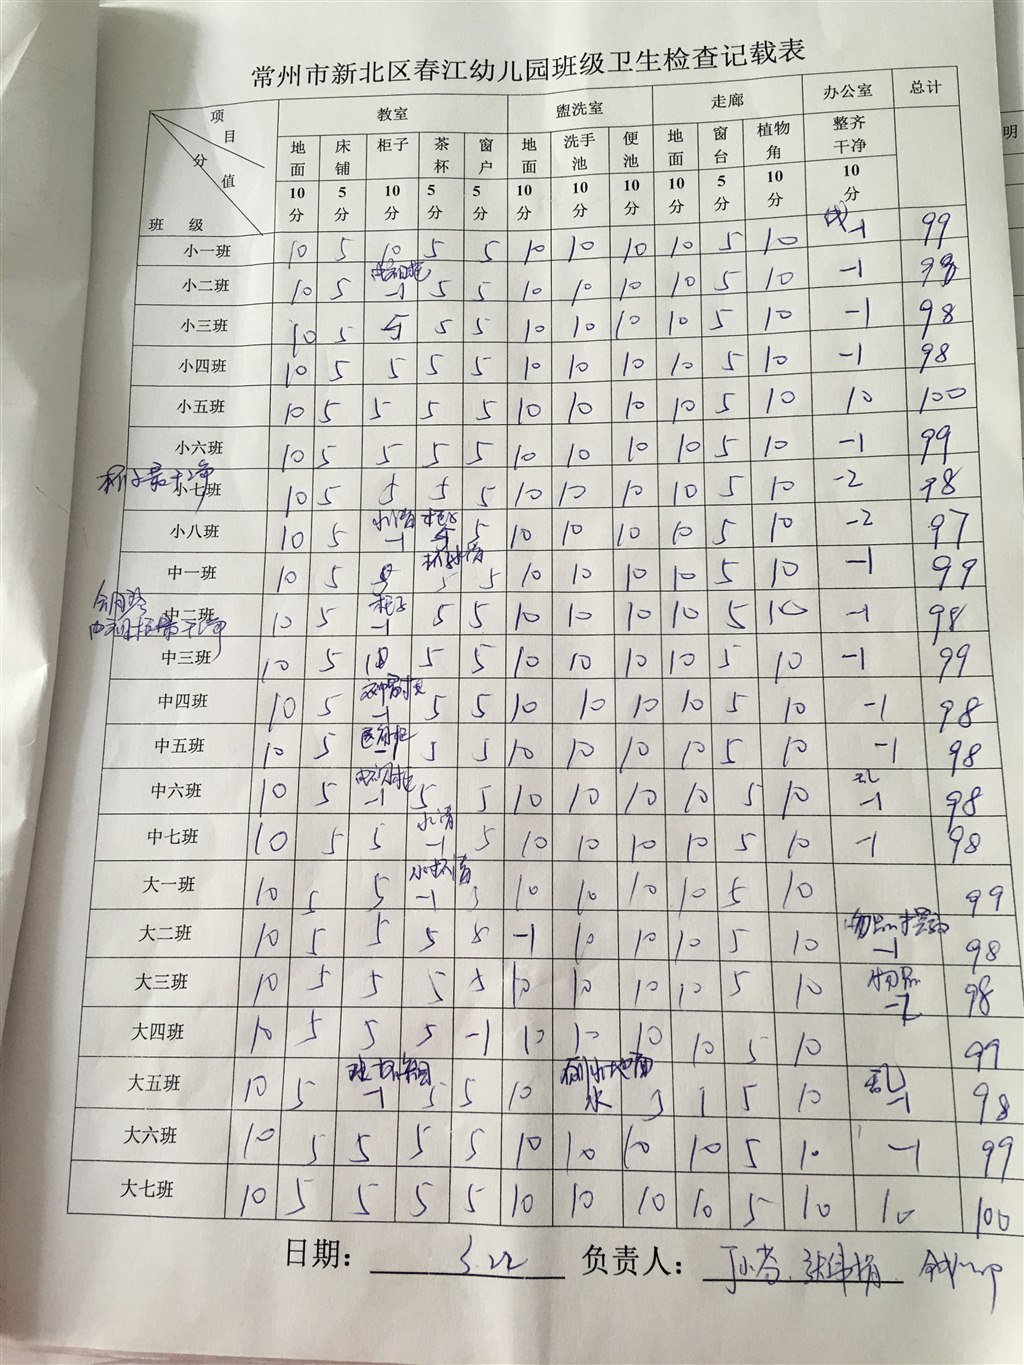 常州市新北区春江幼儿园班级卫生检查记载表
项目 分值 班级 教室 盥洗室 走廊 办公室 总计
地面 床铺 柜子 茶杯 窗户 地面 洗手池 便池 地面 窗台 植物角 整齐干净
10分 5分 10分 5分 5分 10分 10分 10分 10分 5分 10分 10分
小一班 10 5 10 5 5 10 10 10 10 5 10 -1 99
小二班 10 5 -1 5 5 10 10 10 10 5 10 -1 98
小三班 10 5 5 5 5 10 10 10 10 5 10 -1 98
小四班 10 5 5 5 5 10 10 10 10 5 10 -1 98
小五班 10 5 5 5 5 10 10 10 10 5 10 10 100
小六班 10 5 5 5 5 10 10 10 10 5 10 -1 99
小七班 10 5 5 5 5 10 10 10 10 5 10 -2 98
小八班 10 5 -1 5 5 10 10 10 10 5 10 -2 97
中一班 10 5 5 5 5 10 10 10 10 5 10 -1 99
中二班 10 5 柜子 -1 5 5 10 10 10 10 5 10 -1 98
中三班 10 5 10 5 5 10 10 10 10 5 10 -1 99
中四班 10 5 -1 5 5 10 10 10 10 5 10 -1 98
中五班 10 5 -1 5 5 10 10 10 10 5 10 -1 98
中六班 10 5 -1 5 5 10 10 10 10 5 10 乱 -1 98
中七班 10 5 5 -1 5 10 10 10 10 5 10 -1 98
大一班 10 5 5 -1 5 10 10 10 10 5 10 99
大二班 10 5 5 5 5 -1 10 10 10 5 10 -1 98
大三班 10 5 5 5 5 10 10 10 10 5 10 物品 -2 98
大四班 10 5 5 5 -1 10 10 10 10 5 10 99
大五班 10 5 -1 5 5 10 水 5 10 乱 -1 98
大六班 10 5 5 5 5 10 10 10 10 5 10 -1 99
大七班 10 5 5 5 5 10 10 10 10 5 10 10 100
日期： 3.22 负责人：
明